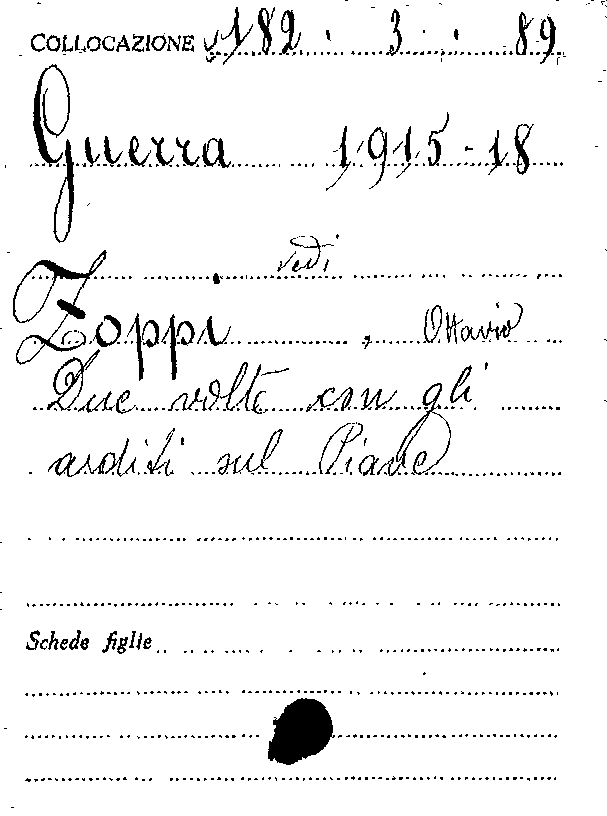 COLLOCAZIONE 182 . 3 . . 89
Guerra 1915-18
vedi
Zoppi, Ottavio
Due volte con gli
arditi sul Piave
Schede figlie